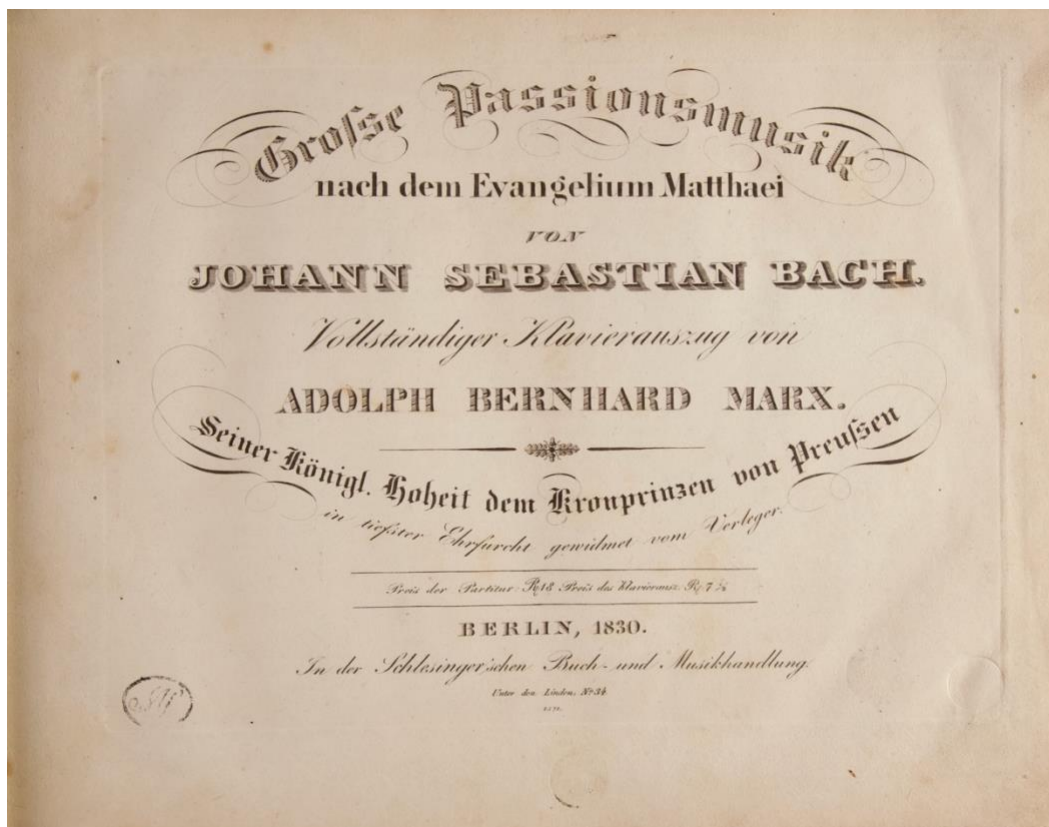 Groſse Passionsmusik
nach dem Evangelium Matthaei
VON
JOHANN SEBASTIAN BACH.
Vollständiger Klavierauszug von
ADOLPH BERNHARD MARX.
Seiner Königl. Hoheit dem Kronprinzen von Preuſsen
in tiefster Ehrfurcht gewidmet vom Verleger.
Preis der Partitur 18 Preis des Klavierausz. 7 ½
BERLIN, 1830.
In der Schlesinger'schen Buch- und Musikhandlung.
Unter den Linden, No 34